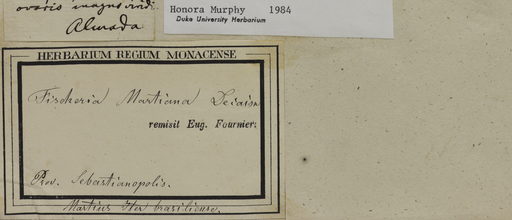 ovariis magis viridi
Almada
Honora Murphy 1984
Duke University Herbarium
HERBARIUM REGIUM MONACENSE
Fischeria Martiana Decaisn
remisit Eug. Fournier.
Prov. Sebastianopolis.
Martius Iter brasiliense.